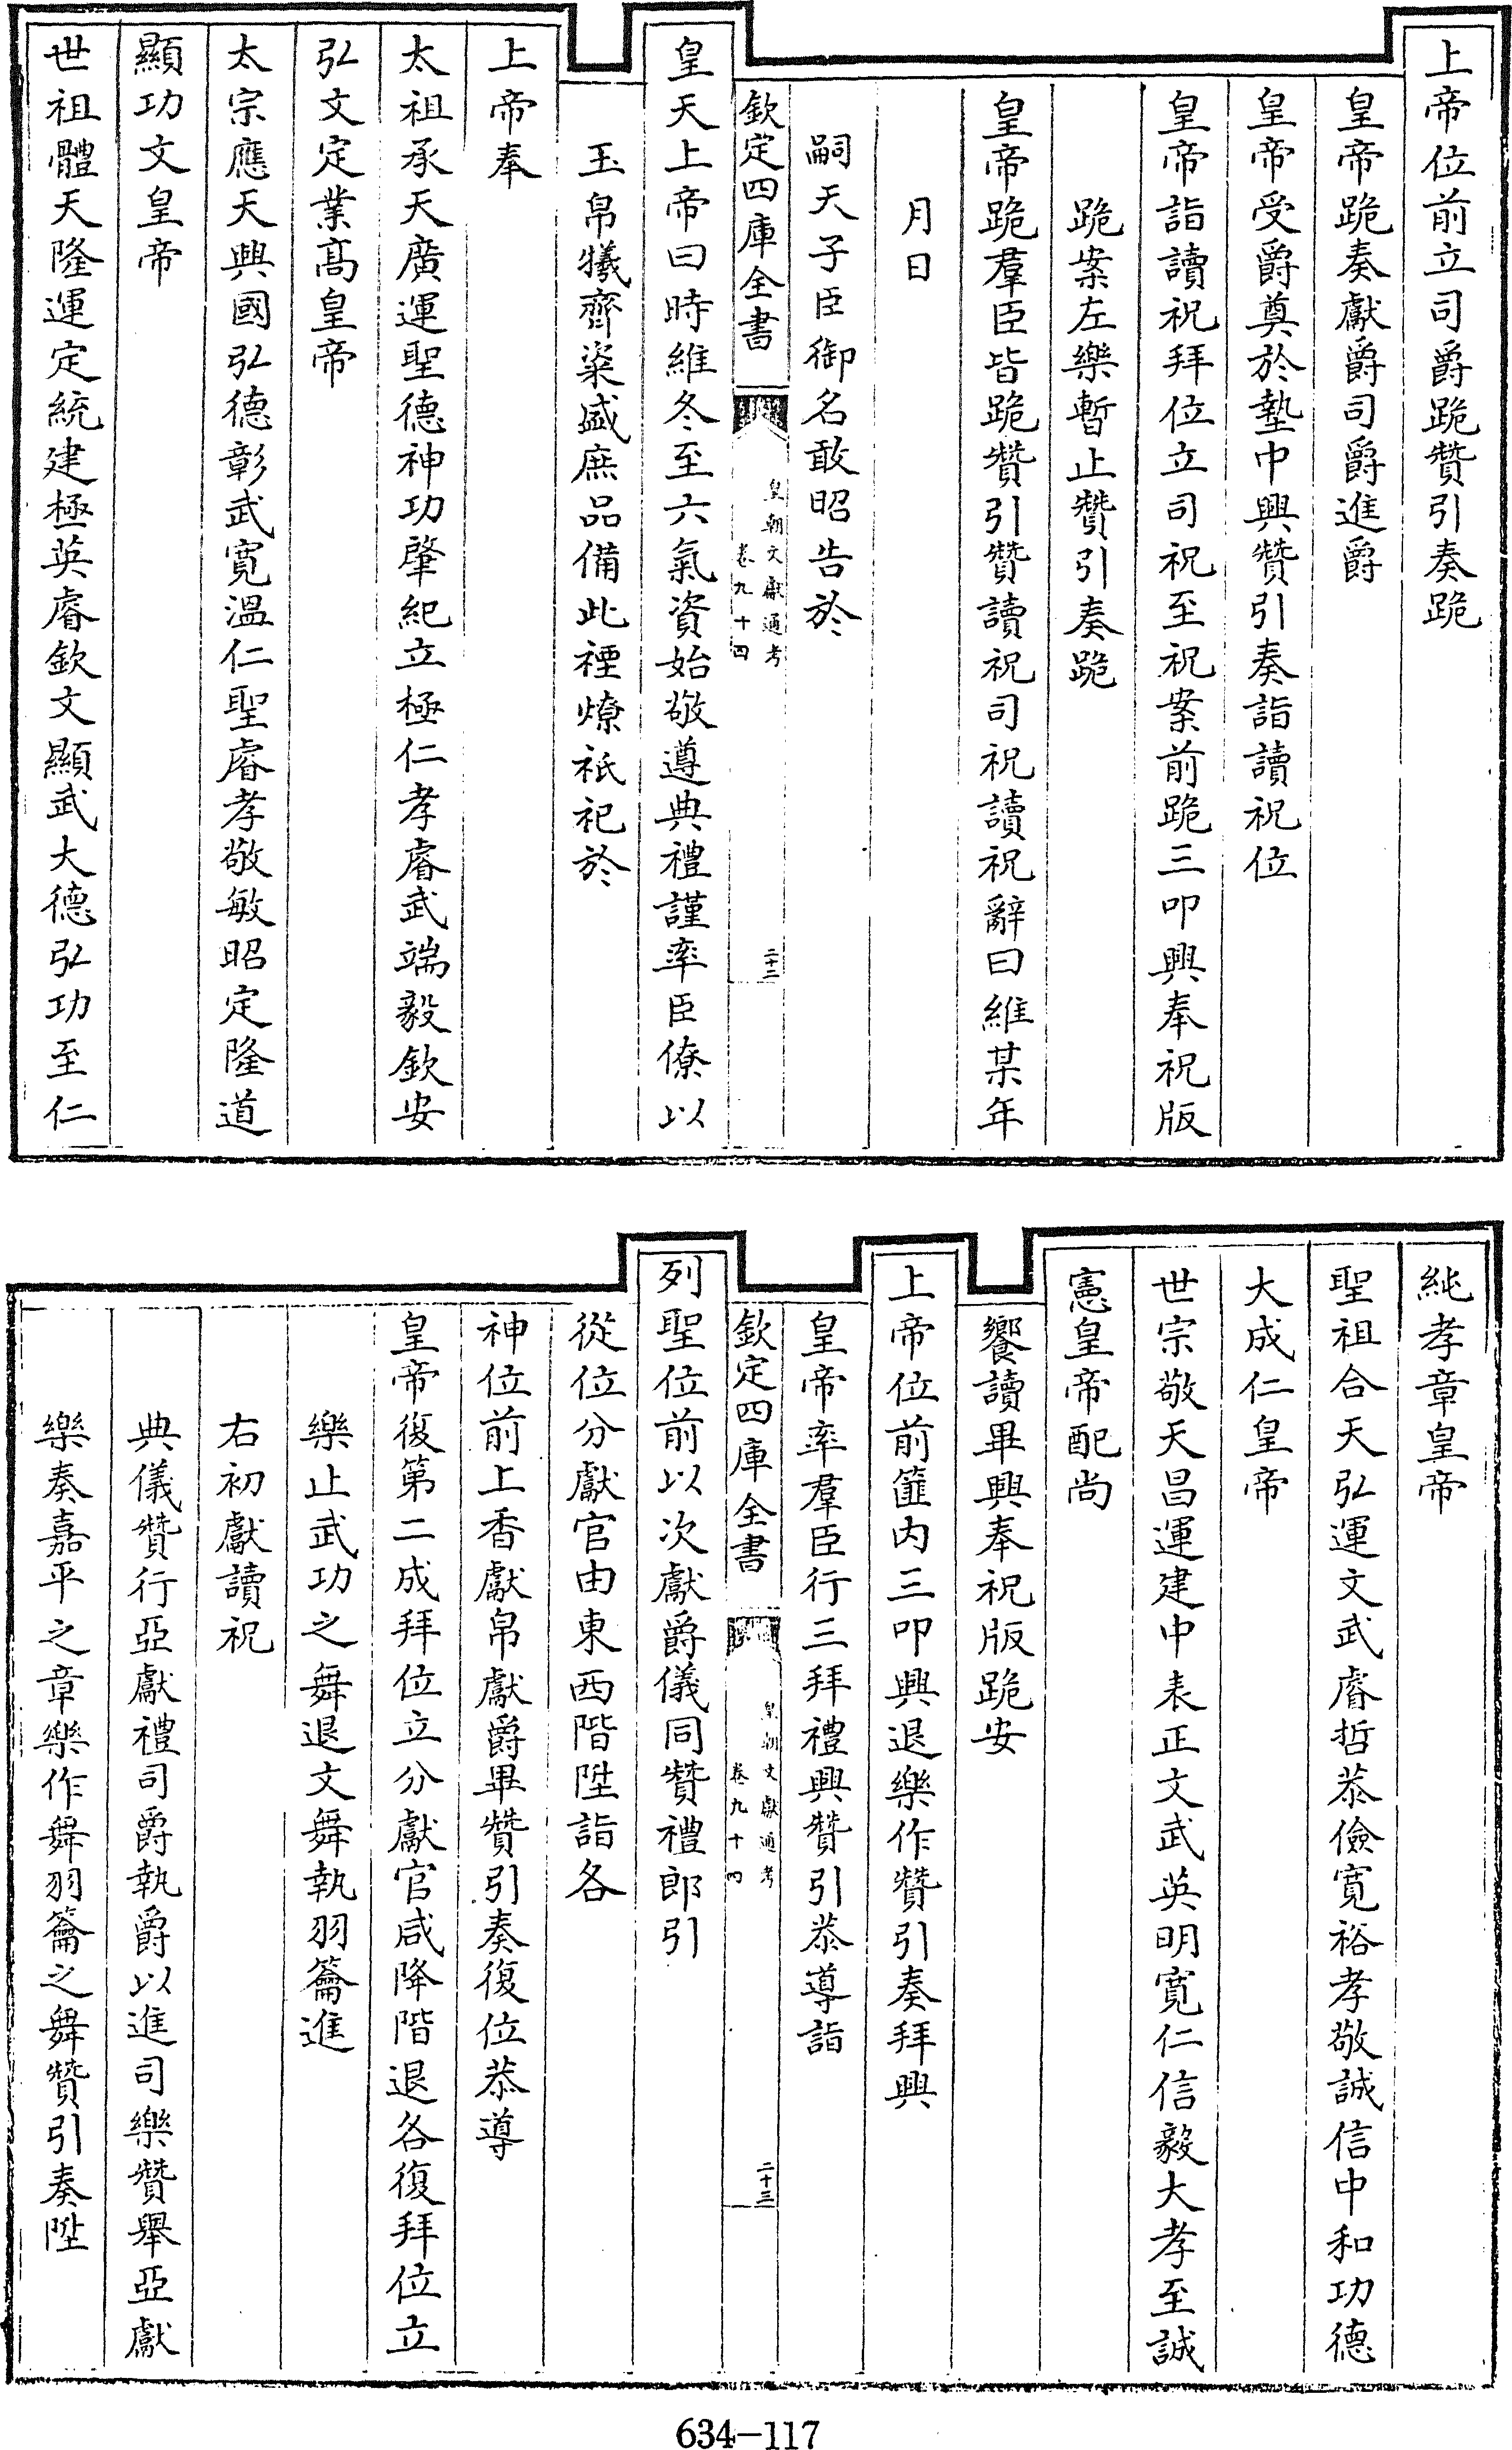 上帝位前立司爵跪贊引奏跪
皇帝跪奏獻爵司爵進爵
皇帝受爵奠於墊中興贊引奏詣讀祝位
皇帝詣讀祝拜位立司祝至祝案前跪三叩興奉祝版
跪案左樂暫止贊引奏跪
皇帝跪羣臣皆跪贊引贊讀祝司祝讀祝辭曰維某年
月日
嗣天子臣御名敢昭告於
欽定四庫全書
皇朝文獻通考
卷九十四
二十二
皇天上帝曰時維冬至六氣資始敬遵典禮謹率臣僚以
玉帛犧齊粢盛庶品備此禋燎祇祀於
上帝奉
太祖承天廣運聖德神功肇紀立極仁孝睿武端毅欽安
弘文定業高皇帝
太宗應天興國弘德彰武寬溫仁聖睿孝敬敏昭定隆道
顯功文皇帝
世祖體天隆運定統建極英睿欽文顯武大德弘功至仁
純孝章皇帝
聖祖合天弘運文武睿哲恭儉寬裕孝敬誠信中和功德
大成仁皇帝
世宗敬天昌運建中表正文武英明寬仁信毅大孝至誠
憲皇帝配尚
饗讀畢興奉祝版跪安
上帝位前篚內三叩興退樂作贊引奏拜興
皇帝率羣臣行三拜禮興贊引恭導詣
欽定四庫全書
皇朝文獻通考
卷九十四
二十三
列聖位前以次獻爵儀同贊禮郎引
從位分獻官由東西階陞詣各
神位前上香獻帛獻爵畢贊引奏復位恭導
皇帝復第二成拜位立分獻官咸降階退各復拜位立
樂止武功之舞退文舞執羽籥進
右初獻讀祝
典儀贊行亞獻禮司爵執爵以進司樂贊舉亞獻
樂奏嘉平之章樂作舞羽籥之舞贊引奏陞
634-117